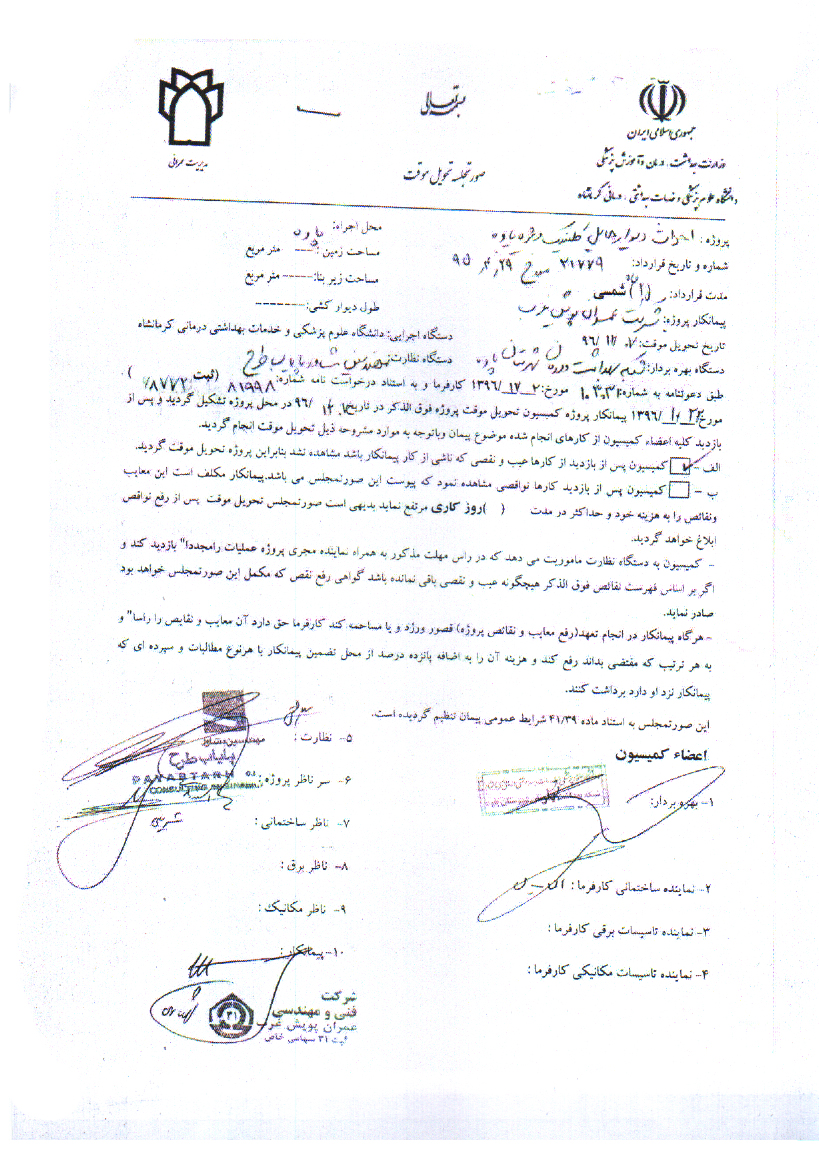 بسمه تعالی
جمهوری اسلامی ایران
وزارت بهداشت، درمان و آموزش پزشکی
دانشگاه علوم پزشکی و خدمات بهداشتی، درمانی کرمانشاه
مدیریت عمرانی
صورتجلسه تحویل موقت
پروژه: احداث دیوار حایل کلینیک ویژه پاوه
محل اجراء: پاوه
شماره و تاریخ قرارداد: ۲۱۷۷۹ مورخ ۹۵,۴,۲۹
مساحت زمین: ---- متر مربع
مدت قرارداد: ( ) ماه شمسی
مساحت زیر بنا: ------ متر مربع
پیمانکار پروژه: شرکت عمران پویش غرب
طول دیوار کشی: -------
تاریخ تحویل موقت:
دستگاه اجرایی: دانشگاه علوم پزشکی و خدمات بهداشتی درمانی کرمانشاه
دستگاه بهره بردار: شبکه بهداشت و درمان شهرستان پاوه
دستگاه نظارت: مهندسین مشاور پایاب طرح
طبق دعوتنامه به شماره: مورخ: کارفرما و به استناد درخواست نامه شماره: ۸۱۹۹۸ (ثبت ۷۸۷۷۲ )
مورخ پیمانکار پروژه کمیسیون تحویل موقت پروژه فوق الذکر در تاریخ در محل پروژه تشکیل گردید و پس از
بازدید کلیه اعضاء کمیسیون از کارهای انجام شده موضوع پیمان وباتوجه به موارد مشروحه ذیل تحویل موقت انجام گردید.
الف - کمیسیون پس از بازدید از کارها عیب و نقصی که ناشی از کار پیمانکار باشد مشاهده نشد بنابراین پروژه تحویل موقت گردید.
ب - کمیسیون پس از بازدید کارها نواقصی مشاهده نمود که پیوست این صورتمجلس می باشد.پیمانکار مکلف است این معایب
ونقائص را به هزینه خود و حداکثر در مدت ( )روز کاری مرتفع نماید بدیهی است صورتمجلس تحویل موقت پس از رفع نواقص
ابلاغ خواهد گردید.
- کمیسیون به دستگاه نظارت ماموریت می دهد که در راس مهلت مذکور به همراه نماینده مجری پروژه عملیات رامجددا" بازدید کند و
اگر بر اساس فهرست نقائص فوق الذکر هیچگونه عیب و نقصی باقی نمانده باشد گواهی رفع نقص که مکمل این صورتمجلس خواهد بود
صادر نماید.
- هرگاه پیمانکار در انجام تعهد(رفع معایب و نقائص پروژه) قصور ورزد و یا مسامحه کند کارفرما حق دارد آن معایب و نقایص را راسا" و
به هر ترتیب که مقتضی بداند رفع کند و هزینه آن را به اضافه پانزده درصد از محل تضمین پیمانکار یا هرنوع مطالبات و سپرده ای که
پیمانکار نزد او دارد برداشت کنند.
این صورتمجلس به استناد ماده ۴۱/۳۹ شرایط عمومی پیمان تنظیم گردیده است.
اعضاء کمیسیون
۱- بهره بردار:
۲- نماینده ساختمانی کارفرما :
۳- نماینده تاسیسات برقی کارفرما :
۴- نماینده تاسیسات مکانیکی کارفرما :
۵- نظارت :
۶- سر ناظر پروژه :
۷- ناظر ساختمانی :
۸- ناظر برق :
۹- ناظر مکانیک :
۱۰- پیمانکار :
مهندسین مشاور
پایاب طرح
شرکت
فنی و مهندسی
عمران پویش غرب
ثبت ۳۱ سهامی خاص